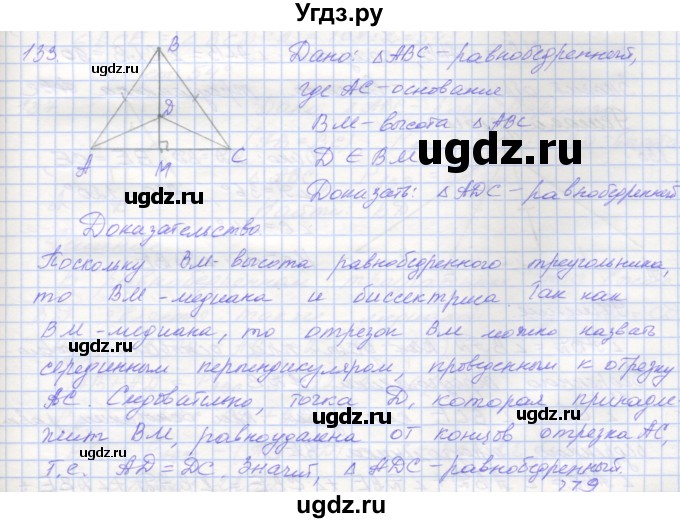 Угдз.ру
133
B
D
A
M
C
Дано: △ABC - равнобедренный,
где AC - основание
BM - высота △ABC
D ∈ BM
Доказать: △ADC - равнобедренный
Доказательство
Поскольку BM - высота равнобедренного треугольника,
то BM - медиана и биссектриса. Так как
BM - медиана, то отрезок BM можно назвать
серединным перпендикуляром, проведенным к отрезку
AC. Следовательно, точка D, которая принадле
жит BM, равноудалена от концов отрезка AC,
т.е. AD = DC. Значит, △ADC - равнобедренный.
ugdz.ru
ugdz.ru
ugdz.ru
ugdz.ru
ugdz.ru
ugdz.ru
ugdz.ru
ugdz.ru
ugdz.ru
ugdz.ru
ugdz.ru